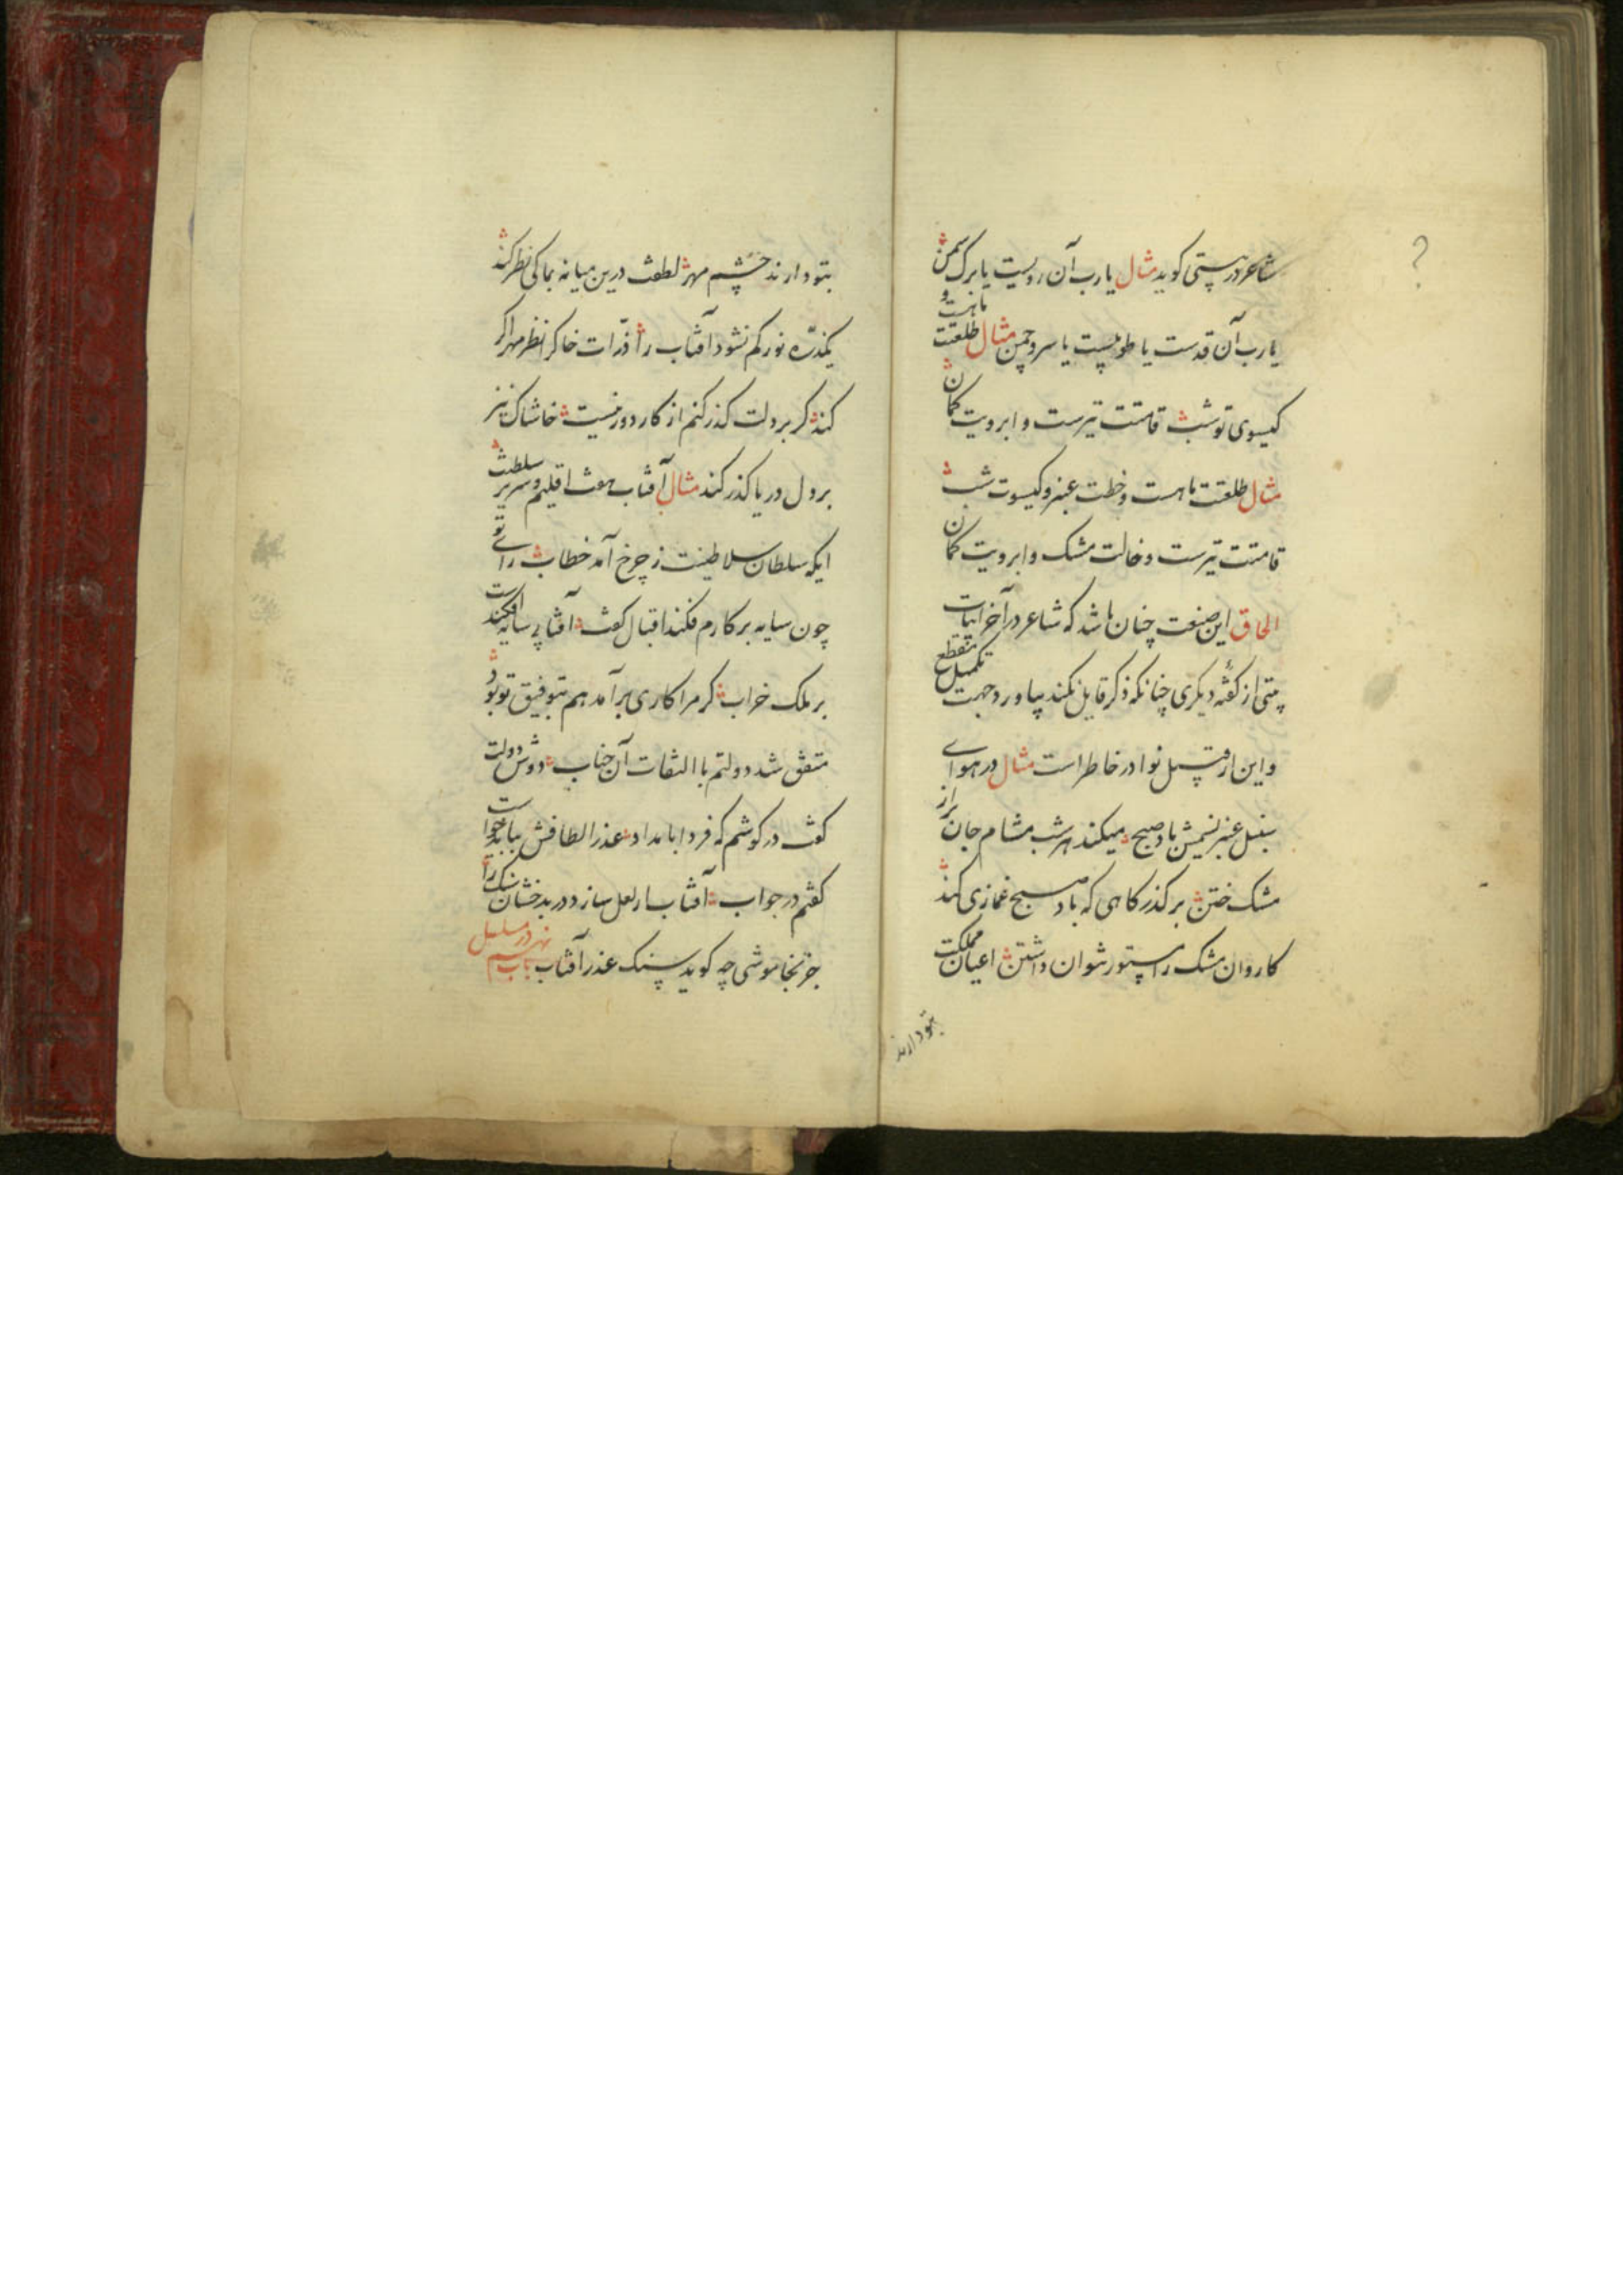 شاعر در بیتی کوید مثال یا رب آن رویست یا برک سمن
یا رب آن قدست یا طوبیست یا سرو چمن مثال طلعتت ماهست و
کیسوی تو شب قامتت تیرست و ابرویت کمان
مثال طلعتت ماهست و خطت عنبر و کیسوت شب
قامتت تیرست و خالت مشک و ابرویت کمان
الحاق این صنعت چنان باشد که شاعر در آخر ابیات
بیتی از کفته دیکری چنانکه ذکر قایل نکند بیاورد جهت تکمیل مقطع
و این از قبیل نوادر خاطر است مثال در هوای
سنبل عنبر نسیمش باد صبح میکند هر شب مشام جان پر از
مشک ختن بر کذرکاهی که باد صبح غمازی کند
کاروان مشک را مستور نتوان داشتن اعیان مملکت
بتو دارند
بتو دارند چشم مهر لطفت درین میانه بما کی نظر کند
یکذره نور کم نشود آفتاب را ذرات خاک را نظر مهر اکر
کند کر بر دلت کذر کنم از کار دور نیست خاشاک نیز
بر دل دریا کذر کند مثال آفتاب هفت اقلیم و سریر سلطنت
ایکه سلطان سلاطینت ز چرخ آمد خطاب رای تو
چون سایه بر کارم فکند اقبال کفت آفتابی سایه افکندست
بر ملک خراب کر مرا کاری برآمد هم بتوفیق تو بود
متفق شد دولتم با التفات آن جناب دوش دولت
کفت در کوشم که فردا بامداد عذر الطافش بباید خواست
کفتم در جواب آفتاب ار لعل سازد در بدخشان سنک را
جز بخاموشی چه کوید سنک عذر آفتاب باب نهم در مسلسل